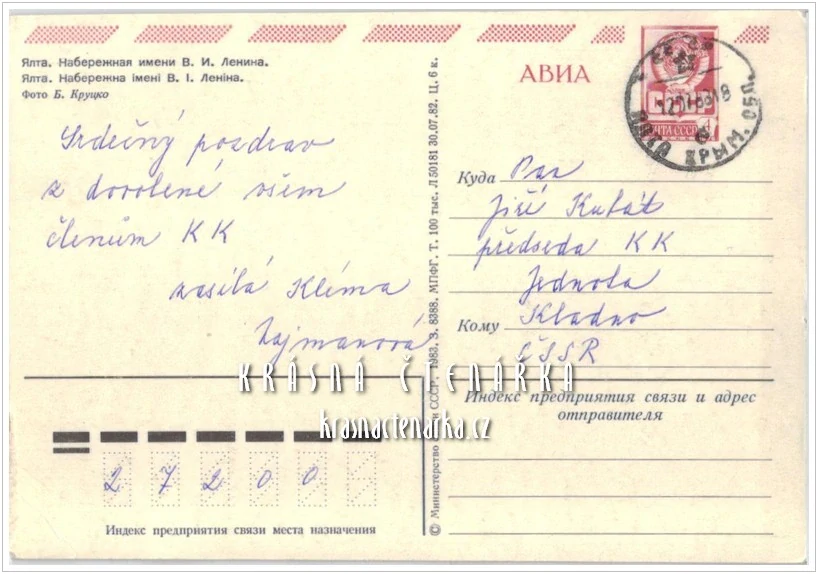 Ялта. Набережная имени В. И. Ленина.
Ялта. Набережна імені В. І. Леніна.
Фото Б. Круцко
АВИА
ПОЧТА СССР
ЯЛТА КРЫМ. ОБЛ.
Srdečný pozdrav
z dovolené všem
členům KK
zasílá Klíma
Zajmanová
Куда Pan
Jiří Kubát
předseda KK
Jednota
Кому Kladno
ČSSR
© Министерство связи СССР, 1983. З. 8388. МПФГ. Т. 100 тыс. Л 50181 30.07.82. Ц. 6 к.
KRÁSNÁ ČTENÁŘKA
krasnactenarka.cz
Индекс предприятия связи и адрес
отправителя
2 7 2 0 0
Индекс предприятия связи места назначения